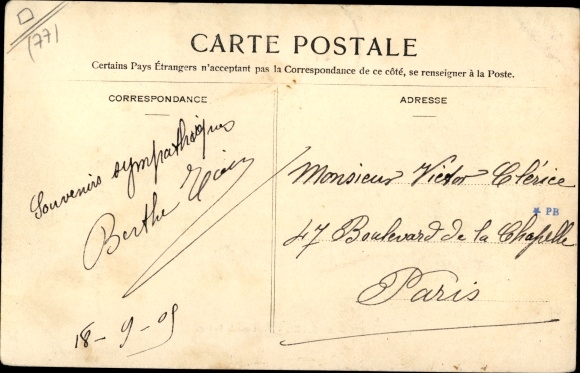 (77)
CARTE POSTALE
Certains Pays Étrangers n'acceptant pas la Correspondance de ce côté, se renseigner à la Poste.
CORRESPONDANCE
Souvenirs sympathiques
Berthe
18-9-09
ADRESSE
Monsieur Victor Clérice
* PB
47 Boulevard de la Chapelle
Paris